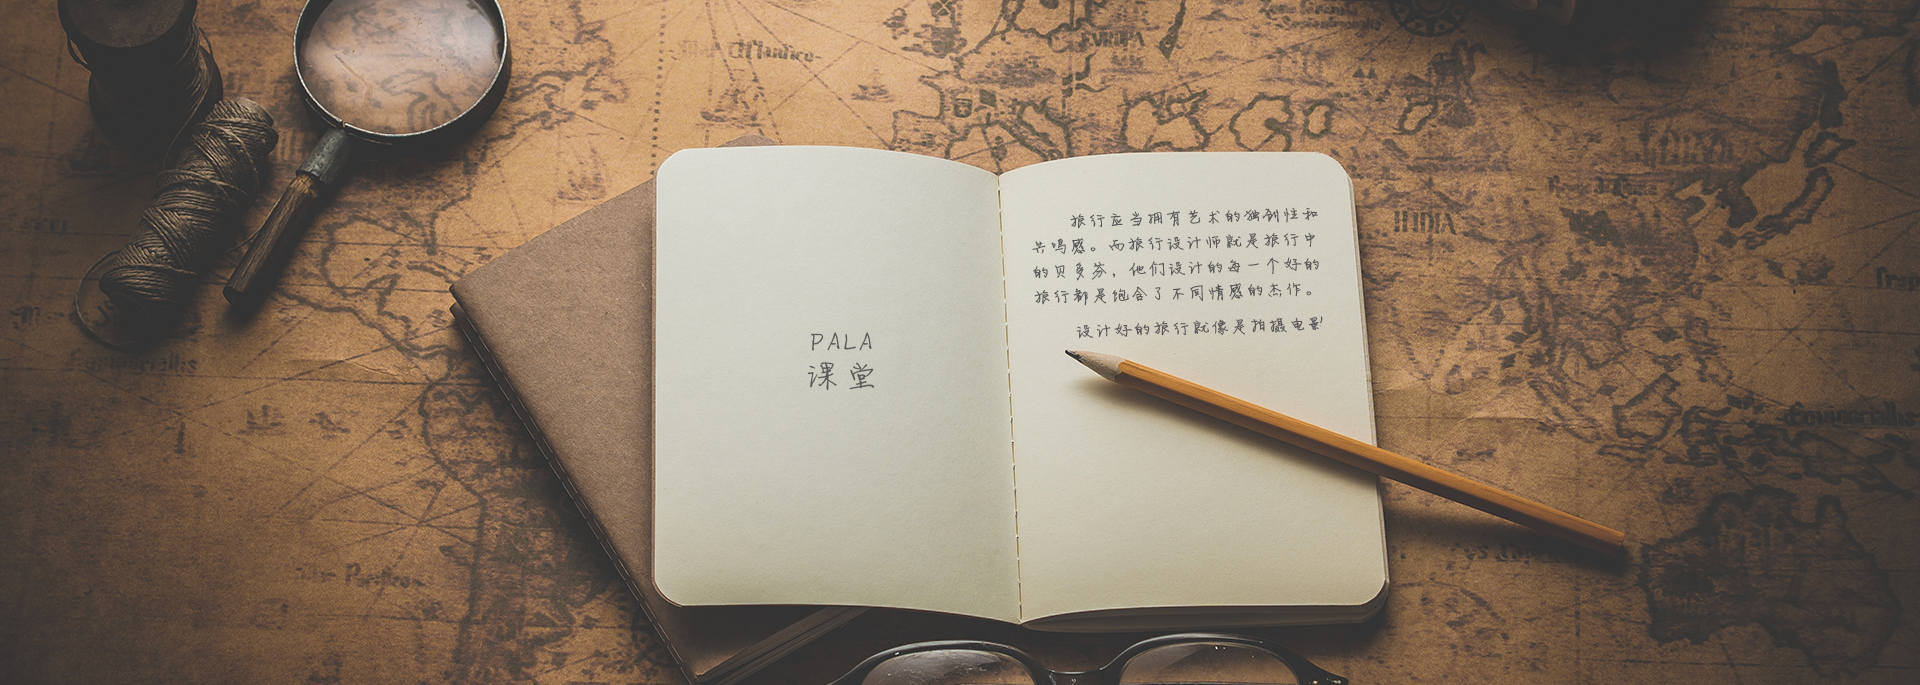 PALA
课堂
旅行应当拥有艺术的独创性和
共鸣感。而旅行设计师就是旅行中
的贝多芬，他们设计的每一个好的
旅行都是饱含了不同情感的杰作。
设计好的旅行就像是拍摄电影
INDIA